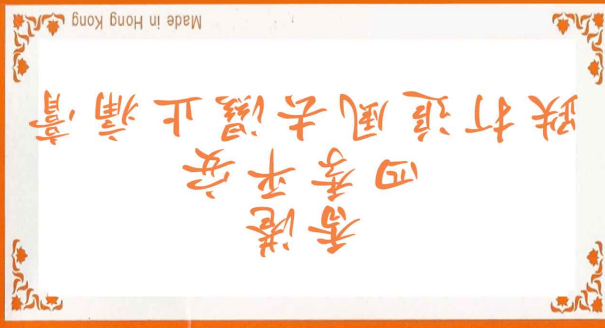 香港
四季平安
跌打追風去濕止痛膏
Made in Hong Kong